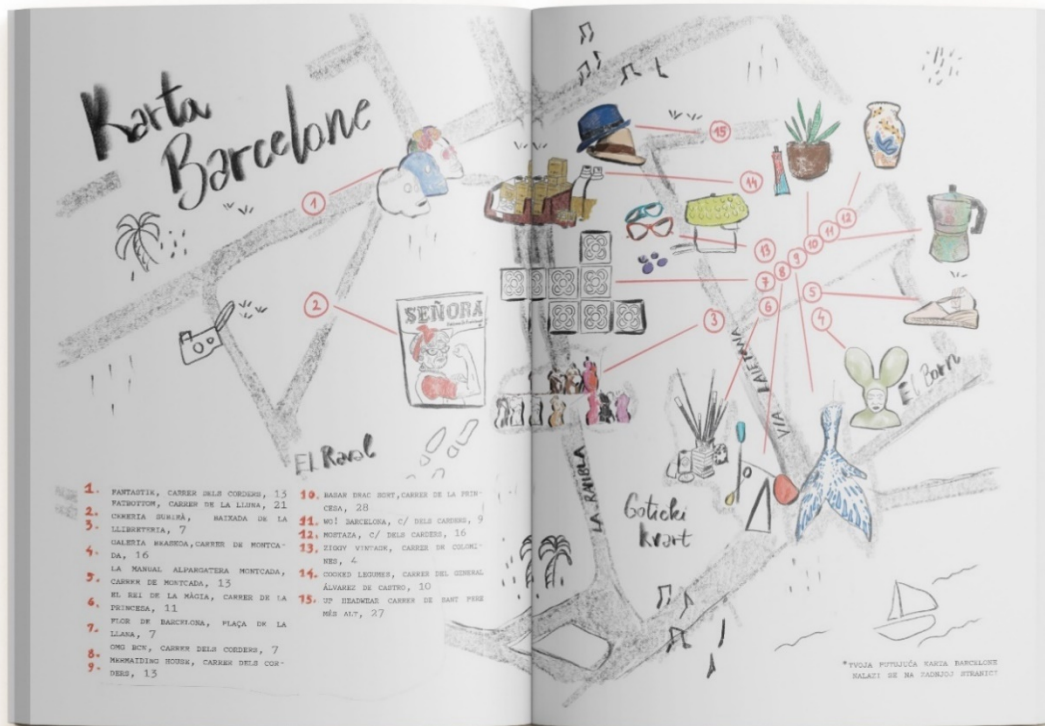 Karta
Barcelone
1
2
SEÑORA
15
14
13
12
11
10
9
8
7
6
5
4
3
VIA LAIETANA
EL Born
EL Raval
LA RAMBLA
Gotički
kvart
1. FANTASTIK, CARRER DELS CORDERS, 13
FATBOTTOM, CARRER DE LA LLUNA, 21
2. CERERIA SUBIRÀ, BAIXADA DE LA
3. LLIBRETERIA, 7
GALERIA BRASEDA, CARRER DE MONTCA-
4. DA, 16
LA MANUAL ALPARGATERA MONTCADA,
5. CARRER DE MONTCADA, 13
EL REI DE LA MÀGIA, CARRER DE LA
6. PRINCESA, 11
FLOR DE BARCELONA, PLAÇA DE LA
7. LLANA, 7
8. OMG BCN, CARRER DELS CORDERS, 7
9. MERMAIDING HOUSE, CARRER DELS COR-
DERS, 13
10. BASAR DRAC SORT, CARRER DE LA PRIN-
CESA, 28
11. WO! BARCELONA, C/ DELS CARDERS, 9
12. MOSTAZA, C/ DELS CARDERS, 16
13. ZIGGY VINTAGE, CARRER DE COLOMI-
NES, 4
14. COOKED LEGUMES, CARRER DEL GENERAL
ÁLVAREZ DE CASTRO, 10
15. UP HEADWEAR CARRER DE SANT PERE
MÉS ALT, 27
*TVOJA PUTUJUĆA KARTA BARCELONE
NALAZI SE NA ZADNJOJ STRANICI